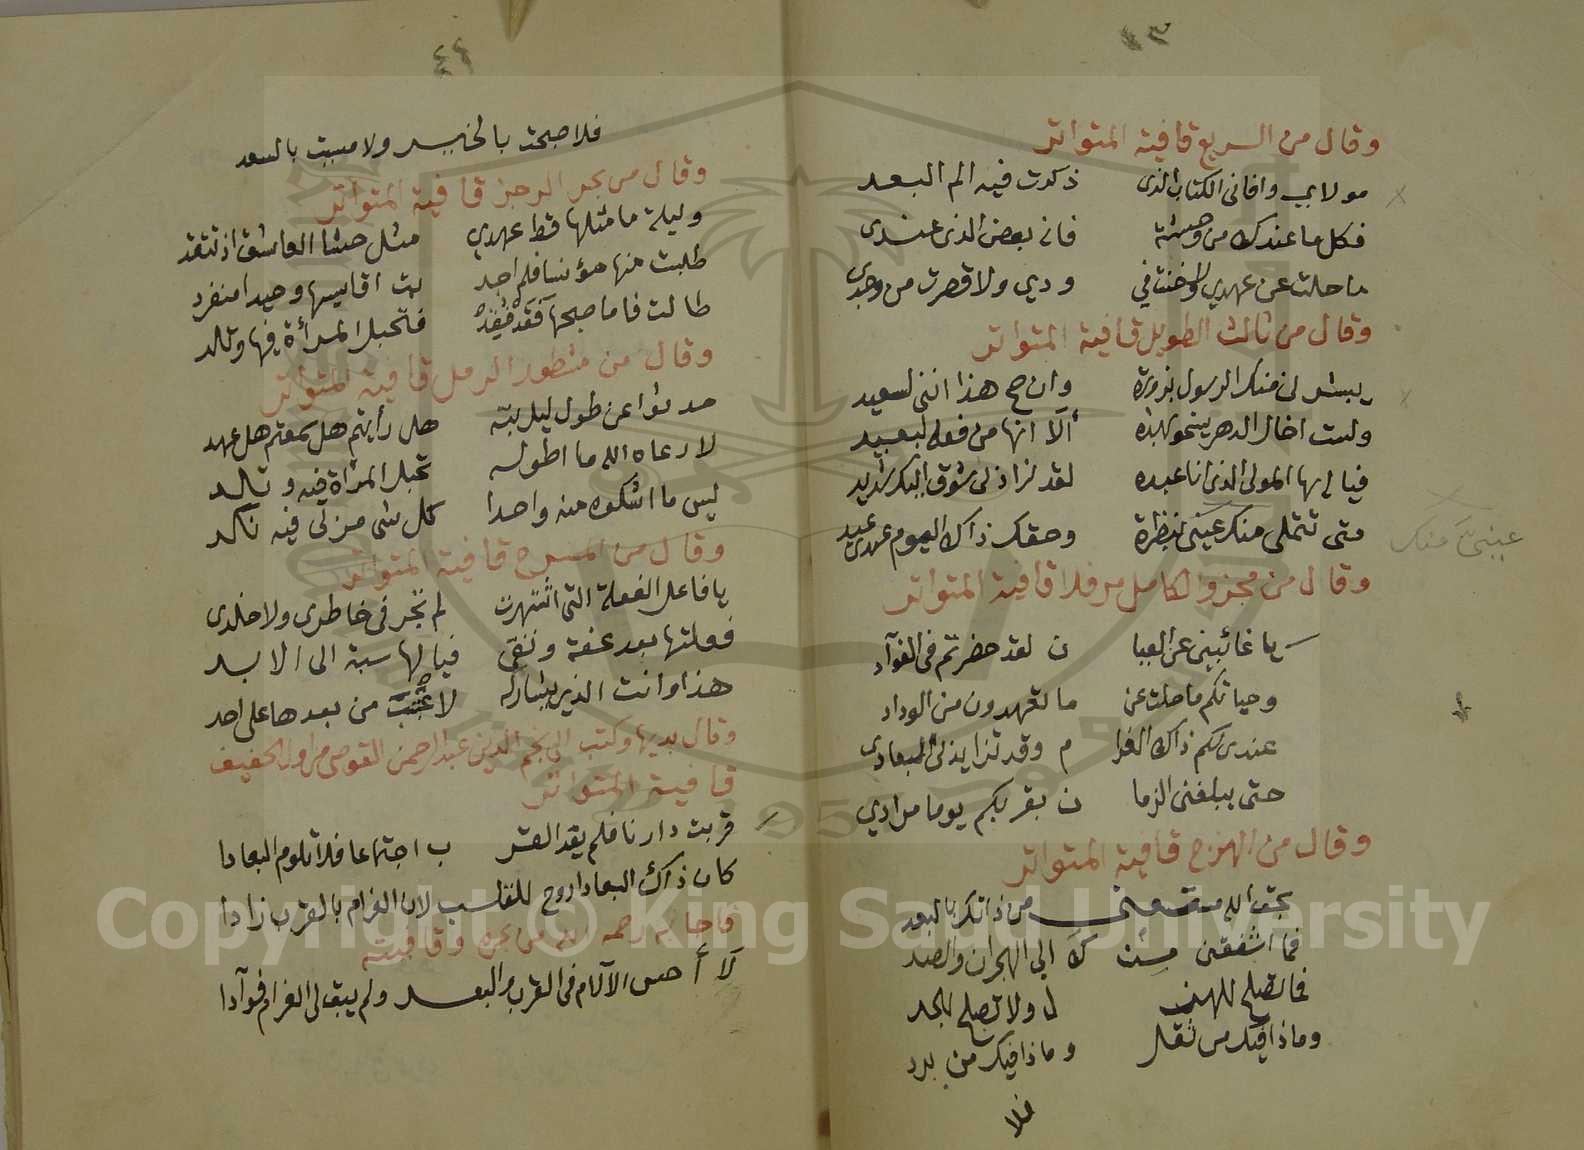 وقال من السريع قافية المتواتر
مولاي وافاني الكتاب الذي ذكرت فيه الم البعد
فكل ما عندك من وحشة فانه بعض الذي عندي
ما حلت عن عهدي ولا خنت في ودي ولا قصرت من وجدي
وقال من ثالث الطويل قافية المتواتر
يبشرني منك الرسول بزورة وان صح هذا انني لسعيد
ولست اخال الدهر يسخو بهذه ألا انها من فعله لبعيد
فيا ايها المولى الذي انا عبده لقد زاد لي شوق اليك شديد
متى تتملى منك عيني بنظرة وحقك ذاك اليوم عندي عيد
عينيَّ منك
وقال من مجزو الكامل مرفلا قافية المتواتر
يا غائبين عن العيا ن لقد حضرتم في الفؤآد
وحياتكم ما حلت عن ما تعهدون من الوداد
عندي لكم ذاك الغرا م وقد تزايد للبعاد
حتى يبلغني الزما ن بقربكم يوما مرادي
وقال من الهزج قافية المتواتر
بحق الله متعني من ذاتك بالبعد
فما اشفقني منك الى الهجران والصد
فما تصلح للهزل ولا تصلح للجد
وماذا فيك من ثقل وماذا فيك من برد
فلا
٤٤
فلا صبحت بالخير ولا مسيت بالسعد
وقال من بحر الرجز قافية المتواتر
وليلة ما مثلها قط عهدي مثل حشا العاشق اذ تتقد
طلبت منها مؤنسا فلم اجد بت اقاسيها وحيدا منفرد
طالت فاما صبحها فقد فقد فتحبل المرأة فيها وتلد
وقال من مشطور الرمل قافية المتواتر
حدثوا عن طول ليل بته هل رأيتم هل سمعتم هل عهد
لا رعاه الله ما اطوله تحبل المرأة فيه وتلد
ليس ما اشكوه منه واحدا كل شي مر لي فيه نكد
وقال من المنسرح قافية المتواتر
يا فاعل الفعلة التي اشتهرت لم تجر في خاطري ولا خلدي
فعلتها بعد عفة وتقى فيا لها سبة الى الابد
هذا وانت الذي يشار له لا عتب من بعدها على احد
وقال بديها وكتب الى نجم الدين عبد الرحمن القوصي من اول الخفيف
قافية المتواتر
قربت دارنا فلم يفد القر ب اجتماعا فلا تلوم البعادا
كان ذاك البعاد اروح للقلب لان الغرام بالقرب زادا
فاجابه رحمه الله من بحره وقافيته
لا أحس الآلام في القرب والبعد ولم يبق لي الغرام فؤآدا
Copyright © King Saud University